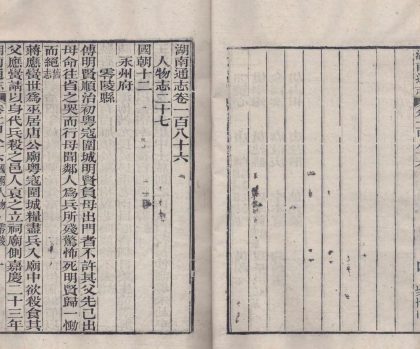 湖南通志卷一百八十六
人物志二十七
國朝十二
永州府
零陵縣
傅明賢順治初粵寇圍城明賢負母出門者不許其父先已出
母命往省之哭而行母聞鄰人為兵所殘驚怖死明賢歸一慟
而絕舊志
蔣應嵩世為巫居唐公廟粵寇圍城糧盡兵入廟中欲殺食其
父應嵩請以身代兵殺之邑人哀之立祠廟側嘉慶二十三年